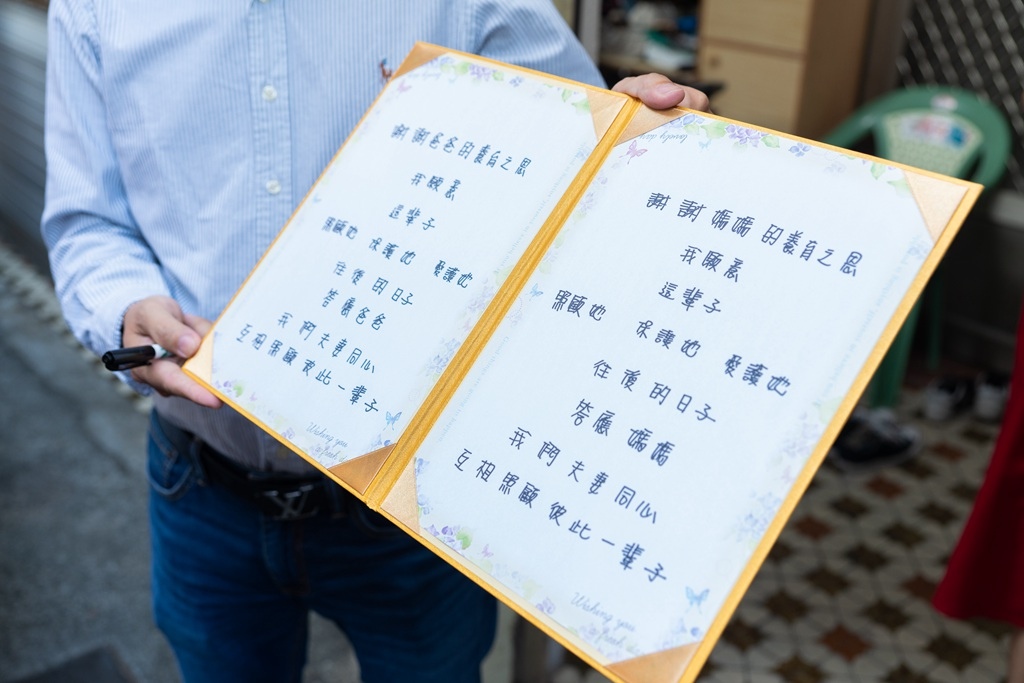 謝謝爸爸的養育之恩
我願意
這輩子
照顧她 保護她 愛護她
往後的日子
答應爸爸
我們夫妻同心
互相照顧彼此一輩子
Wishing you
lovely day
謝謝媽媽的養育之恩
我願意
這輩子
照顧她 保護她 愛護她
往後的日子
答應媽媽
我們夫妻同心
互相照顧彼此一輩子
Wishing you